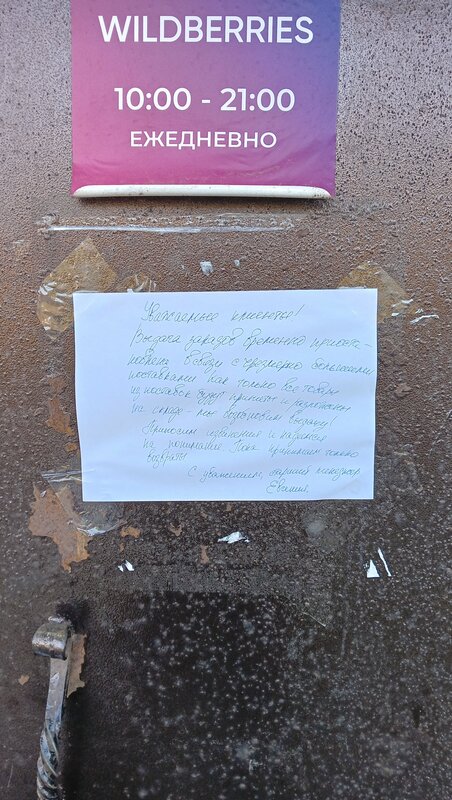 WILDBERRIES
10:00 - 21:00
ЕЖЕДНЕВНО
Уважаемые клиенты!
Выдача заказов временно приоста-
новлена в связи с чрезмерно большими
поставками как только все товары
из поставок будут приняты и разложены
на складе - мы возобновим выдачу!
Приносим извинения и надеемся
на понимание Пока принимаем только
возвраты
С уважением, старший менеджер
Евгения.